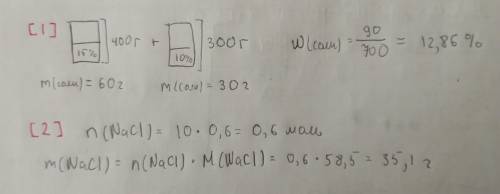 [1] 15% 400г + 10% 300г w(соли) = 90/700 = 12,86 %
m(соли) = 60г m(соли) = 30г
[2] n(NaCl) = 10 · 0,6 = 0,6 моль
m(NaCl) = n(NaCl) · M(NaCl) = 0,6 · 58,5 = 35,1 г